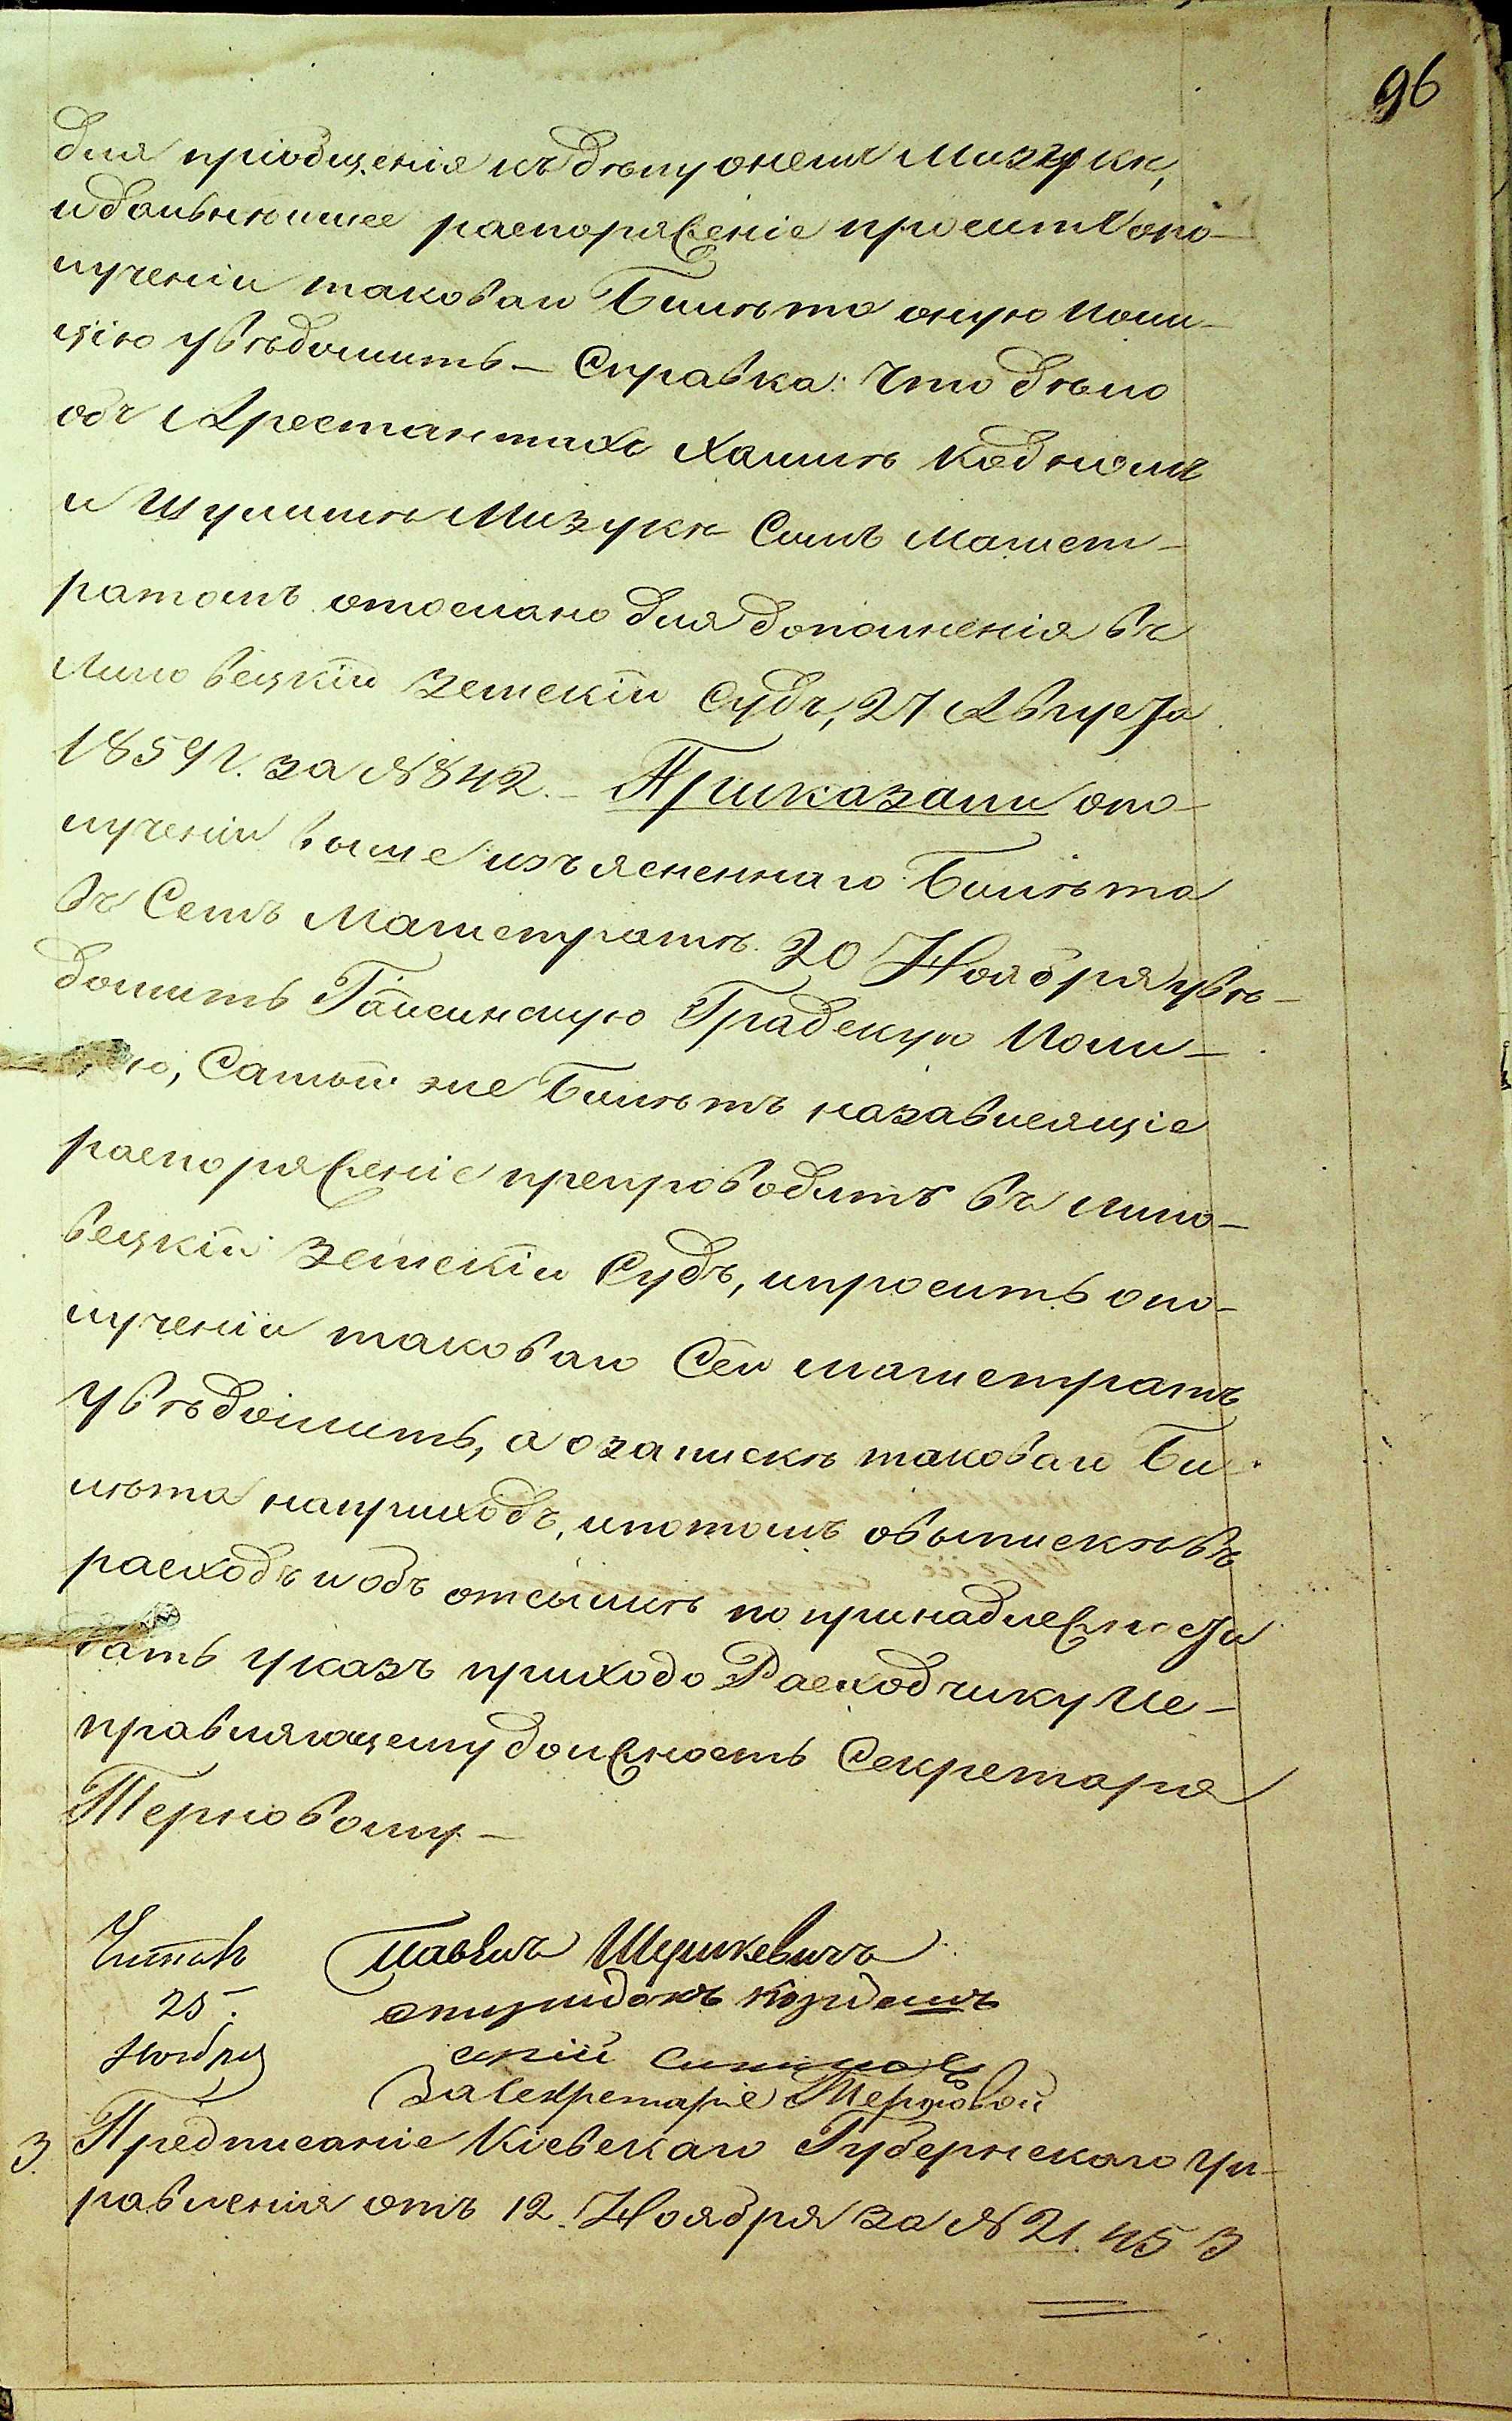 96
для пріобщенія къ дѣлу онемъ Мизуки,
и дальнѣйшее распоряженіе проситъ о по-
лученіи таковаго Билѣта оную Поли-
цію увѣдомить – Справка: Что дѣло
объ Арестантахъ Хаимѣ
и Шулимѣ Мизукѣ Симъ Магист-
ратомъ отослано для дополненія въ
Липовецкій Земскій Судъ, 27 Августа
1859 г. за № 842. – Приказали о по-
лученіи выше изъясненнаго Билѣта
въ Семъ Магистратѣ 20 Ноября увѣ-
домить Гайсинскую Градскую Поли-
цію, Самый же Билѣтъ на зависящіе
распоряженіе препроводить въ Липо-
вецкій Земскій Судъ, и просить о по-
лученіи таковаго Сей магистратъ
Увѣдомить, а о запискѣ таковаго Би-
лѣта на приходъ, и потомъ о выпискѣ въ
расходъ и объ отсылкѣ по принадлежности
дать указъ приходо Расходчику Ис-
правляющему должность Секретаря
Терновому –
Читалъ Павелъ Шушкевичъ
25.
Ноября
За Секретаря Терновой
3. Предписаніе Кіевскаго Губернскаго Уп-
равленія отъ 12 Ноября за № 21.453